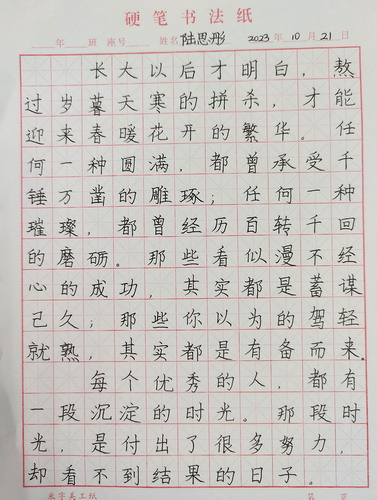 硬笔书法纸
年 班 座号 姓名 陆思彤 2023年10月21日
长大以后才明白，熬
过岁暮天寒的拼杀，才能
迎来春暖花开的繁华。任
何一种圆满，都曾承受千
锤万凿的雕琢；任何一种
璀璨，都曾经历百转千回
的磨砺。那些看似漫不经
心的成功，其实都是蓄谋
己久；那些你以为的驾轻
就熟，其实都是有备而来。
每个优秀的人，都有
一段沉淀的时光。那段时
光，是付出了很多努力，
却看不到结果的日子。
米字美工纸 第 页